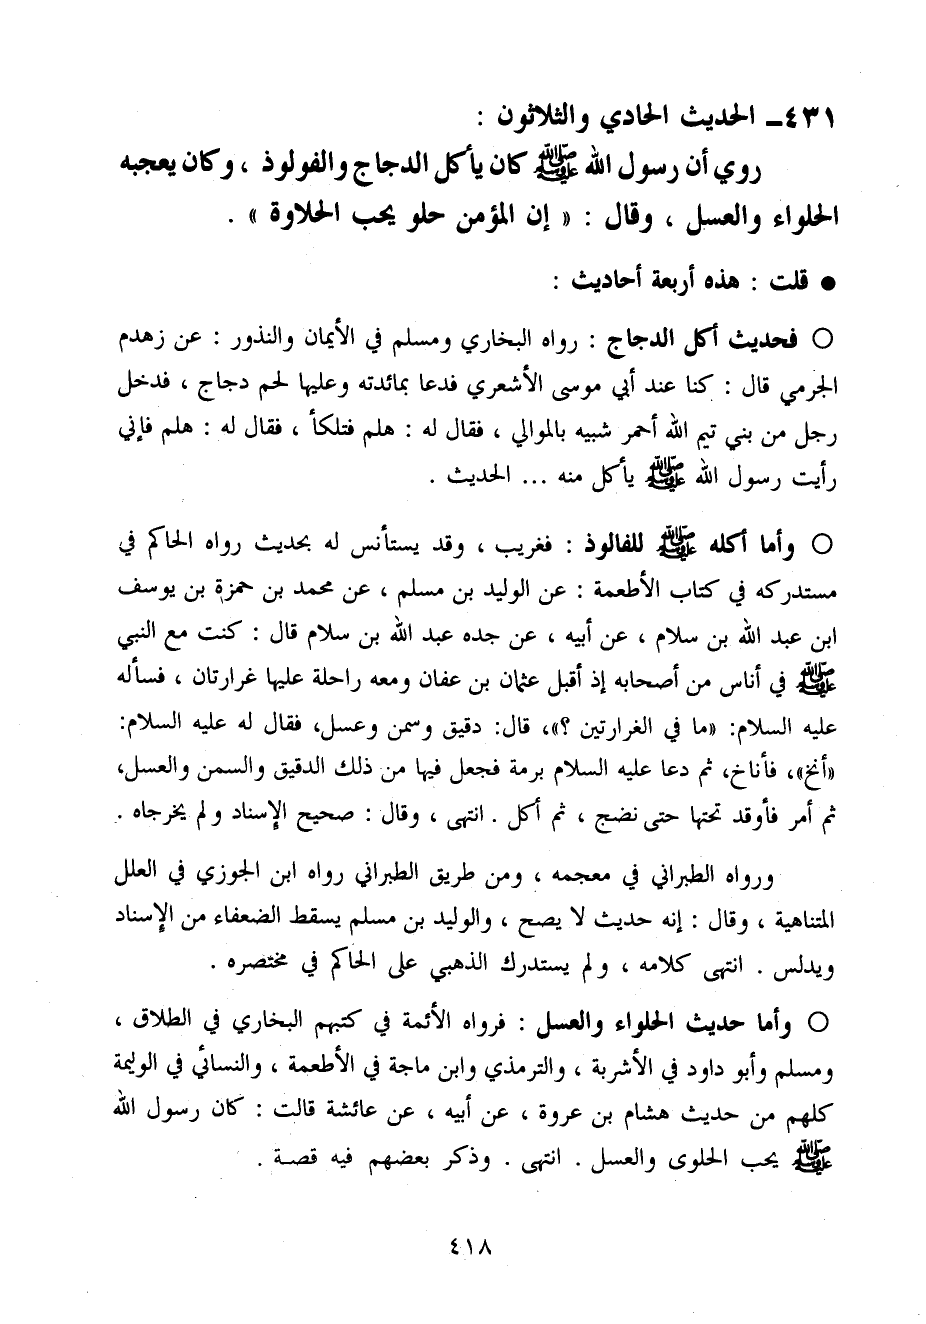 ٤٣١ـ الحديث الحادي والثلاثون :
روي أن رسول الله ﷺ كان يأكل الدجاج والفولوذ ، وكان يعجبه
الحلواء والعسل ، وقال : « إن المؤمن حلو يحب الحلاوة » .
● قلت : هذه أربعة أحاديث :
○ فحديث أكل الدجاج : رواه البخاري ومسلم في الأيمان والنذور : عن زهدم
الجرمي قال : كنا عند أبي موسى الأشعري فدعا بمائدته وعليها لحم دجاج ، فدخل
رجل من بني تيم الله أحمر شبيه بالموالي ، فقال له : هلم فتلكأ ، فقال له : هلم فإني
رأيت رسول الله ﷺ يأكل منه ... الحديث .
○ وأما أكله ﷺ للفالوذ : فغريب ، وقد يستأنس له بحديث رواه الحاكم في
مستدركه في كتاب الأطعمة : عن الوليد بن مسلم ، عن محمد بن حمزة بن يوسف
ابن عبد الله بن سلام ، عن أبيه ، عن جده عبد الله بن سلام قال : كنت مع النبي
ﷺ في أناس من أصحابه إذ أقبل عثمان بن عفان ومعه راحلة عليها غرارتان ، فسأله
عليه السلام: «ما في الغرارتين ؟»، قال: دقيق وسمن وعسل، فقال له عليه السلام:
«أنخ»، فأناخ، ثم دعا عليه السلام برمة فجعل فيها من ذلك الدقيق والسمن والعسل،
ثم أمر فأوقد تحتها حتى نضج ، ثم أكل . انتهى ، وقال : صحيح الإسناد ولم يخرجاه .
ورواه الطبراني في معجمه ، ومن طريق الطبراني رواه ابن الجوزي في العلل
المتناهية ، وقال : إنه حديث لا يصح ، والوليد بن مسلم يسقط الضعفاء من الإسناد
ويدلس . انتهى كلامه ، ولم يستدرك الذهبي على الحاكم في مختصره .
○ وأما حديث الحلواء والعسل : فرواه الأئمة في كتبهم البخاري في الطلاق ،
ومسلم وأبو داود في الأشربة ، والترمذي وابن ماجة في الأطعمة ، والنسائي في الوليمة
كلهم من حديث هشام بن عروة ، عن أبيه ، عن عائشة قالت : كان رسول الله
ﷺ يحب الحلوى والعسل . انتهى . وذكر بعضهم فيه قصة .
٤١٨